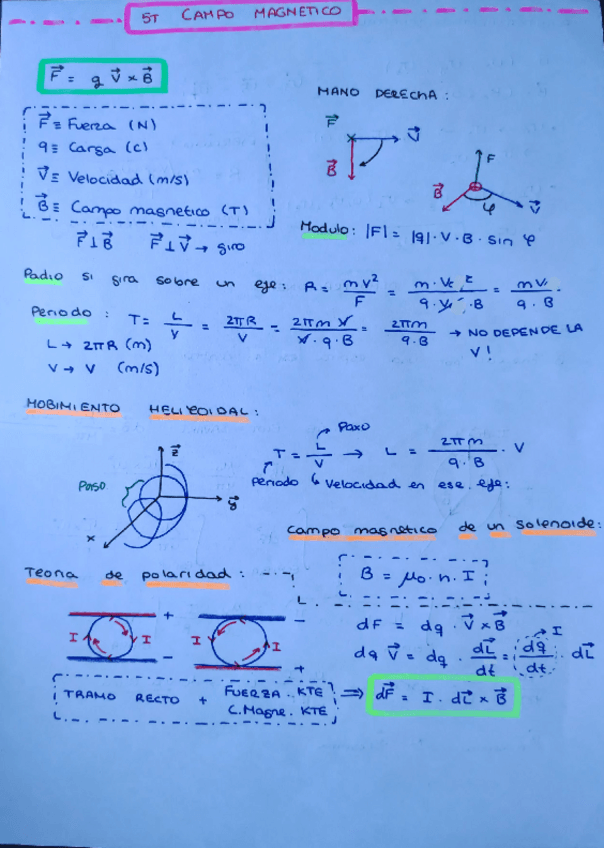 5T CAMPO MAGNETICO
F⃗ = q V⃗ × B⃗
MANO DERECHA:
F⃗ ≡ Fuerza (N)
q ≡ Carga (C)
V⃗ ≡ Velocidad (m/s)
B⃗ ≡ Campo magnetico (T)
F⃗ V⃗ B⃗
F B⃗ φ V⃗
F⃗ ⊥ B⃗ F⃗ ⊥ V⃗ → giro
Modulo: |F| = |q| · V · B · sin φ
Radio si gira sobre un eje: R = mV²/F = m · V² / q · V · B = mV / q · B
Periodo: T = L/V = 2πR/V = 2πm V / V · q · B = 2πm / q · B → NO DEPENDE LA V!
L → 2πR (m)
V → V (m/s)
MOBIMIENTO HELICOIDAL:
Paxo
T = L/V → L = 2πm / q · B · V
Periodo ↳ Velocidad en ese eje:
Z⃗
Y⃗
X
Campo magnetico de un solenoide:
B = μ₀ · n · I
Teoria de polaridad:
+ − I I
− + I I
dF = dq · V⃗ × B⃗
dq V⃗ = dq · dL⃗/dt = dq/dt · dL⃗
I
TRAMO RECTO + FUERZA · KTE
C. Magne. KTE
⇒ dF⃗ = I · dL⃗ × B⃗